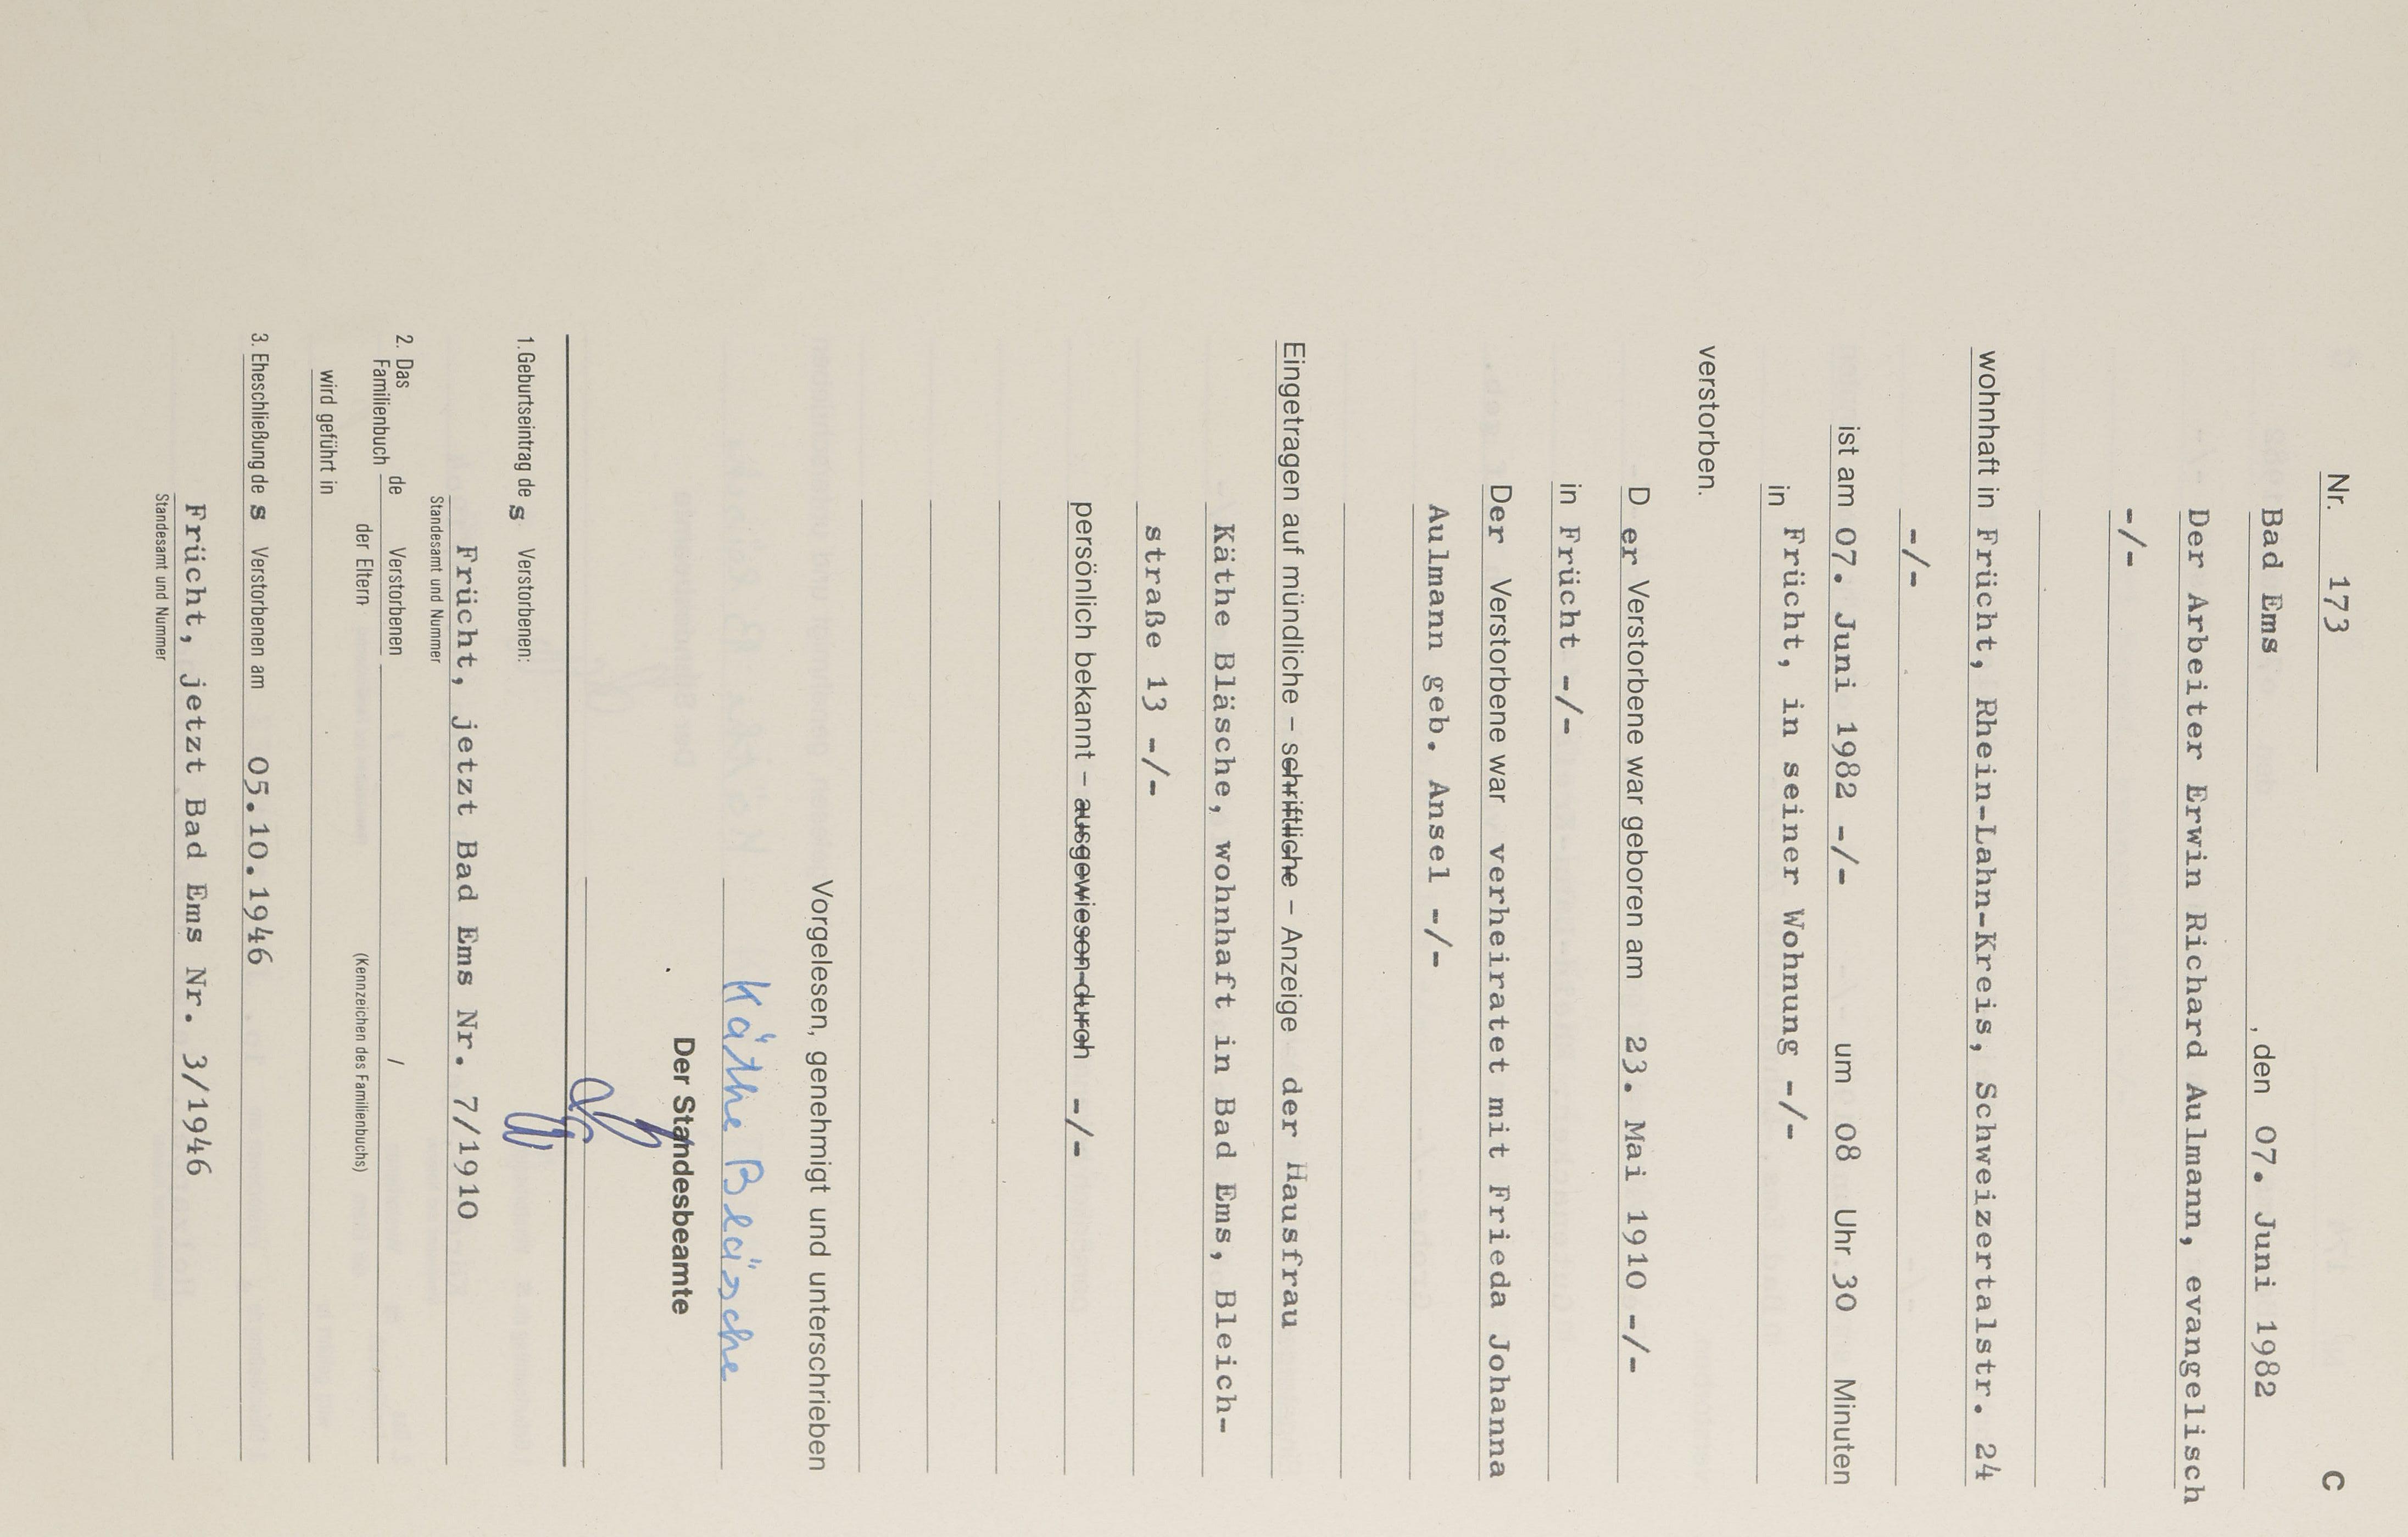 Nr. 173 C
Bad Ems , den 07. Juni 1982
Der Arbeiter Erwin Richard Aulmann, evangelisch
-/-
wohnhaft in Frücht, Rhein-Lahn-Kreis, Schweizertalstr. 24
-/-
ist am 07. Juni 1982 -/- um 08 Uhr 30 Minuten
in Frücht, in seiner Wohnung -/-
verstorben.
D er Verstorbene war geboren am 23. Mai 1910 -/-
in Frücht -/-
Der Verstorbene war verheiratet mit Frieda Johanna
Aulmann geb. Ansel -/-
Eingetragen auf mündliche – schriftliche – Anzeige der Hausfrau
Käthe Bläsche, wohnhaft in Bad Ems, Bleich-
straße 13 -/-
persönlich bekannt – ausgewiesen durch -/-
Vorgelesen, genehmigt und unterschrieben
Käthe Bläsche
Der Standesbeamte
1. Geburtseintrag de s Verstorbenen:
Frücht, jetzt Bad Ems Nr. 7/1910
Standesamt und Nummer
2. Das Familienbuch de Verstorbenen /
der Eltern (Kennzeichen des Familienbuchs)
wird geführt in
3. Eheschließung de s Verstorbenen am 05.10.1946
Frücht, jetzt Bad Ems Nr. 3/1946
Standesamt und Nummer